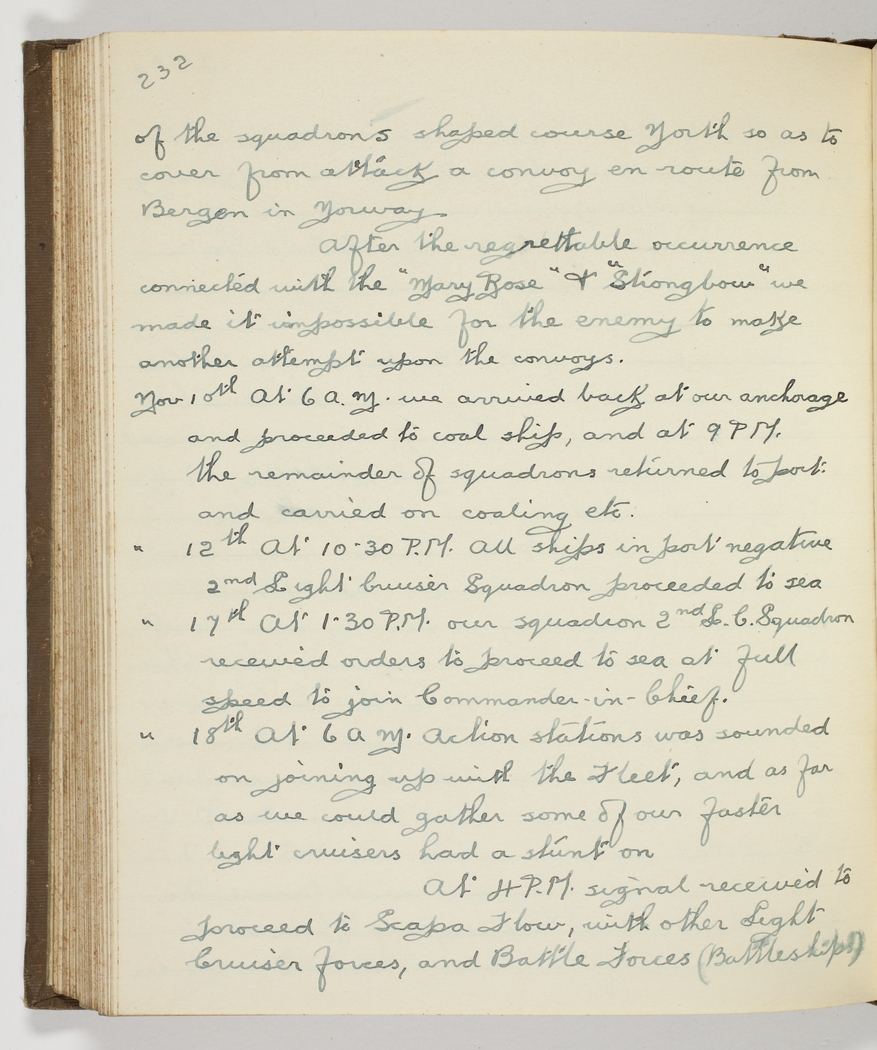 232
of the squadrons shaped course North so as to
cover from attack a convoy en-route from
Bergen in Norway.
After the regrettable occurrence
connected with the "Mary Rose" & "Strongbow" we
made it impossible for the enemy to make
another attempt upon the convoys.
Nov 10th At 6 A.M. we arrived back at our anchorage
and proceeded to coal ship, and at 9 P.M.
the remainder of squadrons returned to port
and carried on coaling etc.
" 12th At 10-30 P.M. All ships in port negative
2nd Light Cruiser Squadron proceeded to sea
" 17th At 1-30 P.M. our squadron 2nd L.C. Squadron
received orders to proceed to sea at full
speed to join Commander-in-Chief.
" 18th At 6 A M. Action stations was sounded
on joining up with the Fleet, and as far
as we could gather some of our faster
light cruisers had a stunt on
At 4 P.M. signal received to
proceed to Scapa Flow, with other Light
Cruiser forces, and Battle Forces (Battleships)